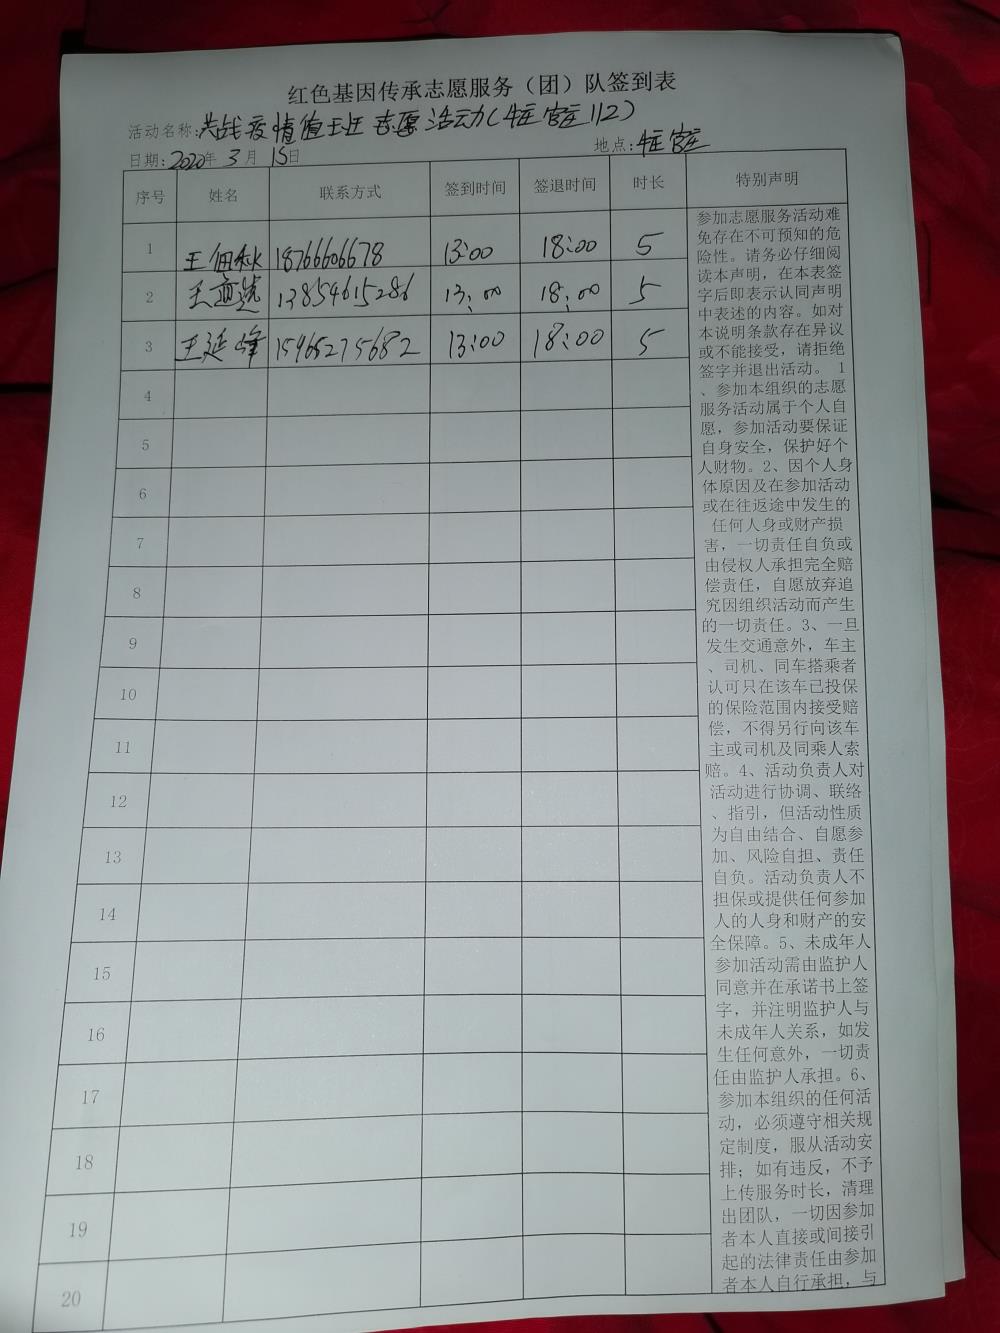 红色基因传承志愿服务（团）队签到表
活动名称：共战疫情值班志愿活动(牛庄112)
日期：2020年3月15日 地点：牛庄
序号 姓名 联系方式 签到时间 签退时间 时长 特别声明
1 王佃秋 18766606678 13:00 18:00 5
2 王 13854615286 13:00 18:00 5
3 王延峰 15965275682 13:00 18:00 5
4
5
6
7
8
9
10
11
12
13
14
15
16
17
18
19
20
参加志愿服务活动难
免存在不可预知的危
险性。请务必仔细阅
读本声明，在本表签
字后即表示认同声明
中表述的内容。如对
本说明条款存在异议
或不能接受，请拒绝
签字并退出活动。 1
、参加本组织的志愿
服务活动属于个人自
愿，参加活动要保证
自身安全，保护好个
人财物。2、因个人身
体原因及在参加活动
或在往返途中发生的
任何人身或财产损
害，一切责任自负或
由侵权人承担完全赔
偿责任，自愿放弃追
究因组织活动而产生
的一切责任。3、一旦
发生交通意外，车主
、司机、同车搭乘者
认可只在该车已投保
的保险范围内接受赔
偿，不得另行向该车
主或司机及同乘人索
赔。4、活动负责人对
活动进行协调、联络
、指引，但活动性质
为自由结合、自愿参
加、风险自担、责任
自负。活动负责人不
担保或提供任何参加
人的人身和财产的安
全保障。5、未成年人
参加活动需由监护人
同意并在承诺书上签
字，并注明监护人与
未成年人关系，如发
生任何意外，一切责
任由监护人承担。6、
参加本组织的任何活
动，必须遵守相关规
定制度，服从活动安
排；如有违反，不予
上传服务时长，清理
出团队，一切因参加
者本人直接或间接引
起的法律责任由参加
者本人自行承担，与